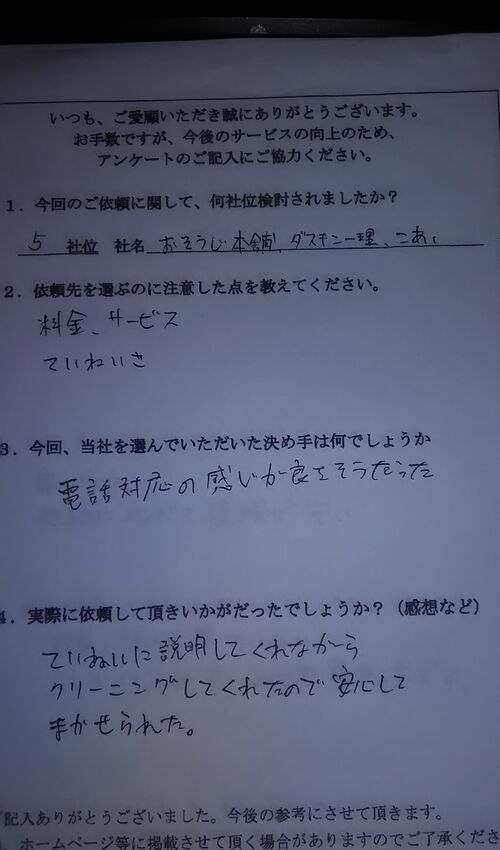 いつも、ご愛顧いただき誠にありがとうございます。
お手数ですが、今後のサービスの向上のため、
アンケートのご記入にご協力ください。
1．今回のご依頼に関して、何社位検討されましたか？
5 社位 社名 おそうじ本舗、ダスキン一理、こあ、
2．依頼先を選ぶのに注意した点を教えてください。
料金、サービス
ていねいさ
3．今回、当社を選んでいただいた決め手は何でしょうか
電話対応の感じが良さそうだった
4．実際に依頼して頂きいかがだったでしょうか？（感想など）
ていねいに説明してくれながら
クリーニングしてくれたので安心して
まかせられた。
ご記入ありがとうございました。今後の参考にさせて頂きます。
ホームページ等に掲載させて頂く場合がありますのでご了承くださ